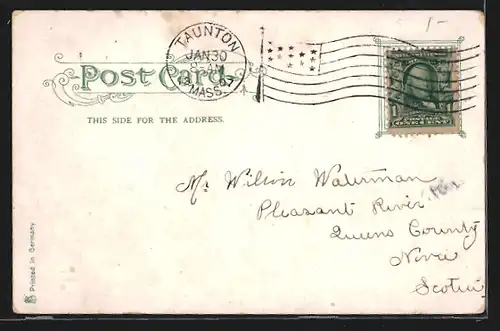 1-
TAUNTON
JAN 30
AM
MASS.
Post Card
THIS SIDE FOR THE ADDRESS.
POSTAGE
ONE CENT
Mr Wilson Waterman
Pleasant River
Queens County
Nova
Scotia
Printed in Germany